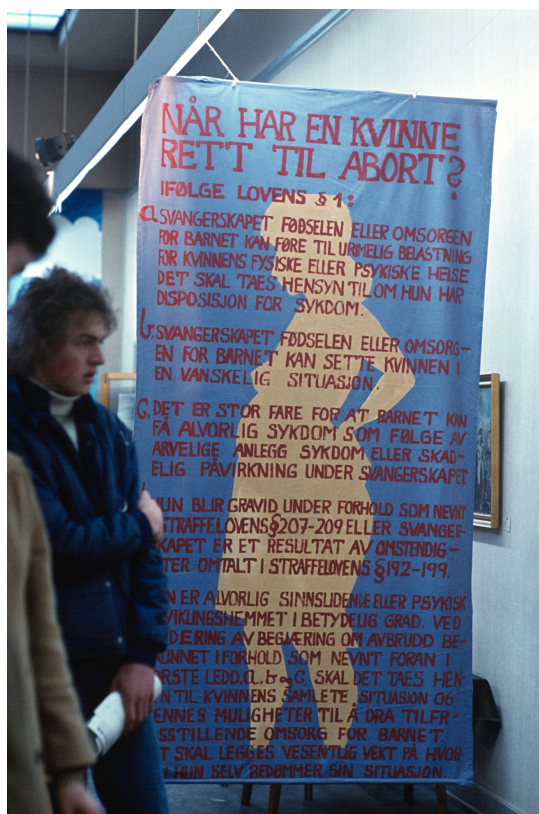 NÅR HAR EN KVINNE
RETT TIL ABORT?
IFØLGE LOVENS § 1:
a. SVANGERSKAPET FØDSELEN ELLER OMSORGEN
FOR BARNET KAN FØRE TIL URIMELIG BELASTNING
FOR KVINNENS FYSISKE ELLER PSYKISKE HELSE
DET SKAL TAES HENSYN TIL OM HUN HAR
DISPOSISJON FOR SYKDOM.
b. SVANGERSKAPET FØDSELEN ELLER OMSORG–
EN FOR BARNET KAN SETTE KVINNEN I
EN VANSKELIG SITUASJON.
C, DET ER STOR FARE FOR AT BARNET KAN
FÅ ALVORLIG SYKDOM SOM FØLGE AV
ARVELIGE ANLEGG SYKDOM ELLER SKAD–
ELIG PÅVIRKNING UNDER SVANGERSKAPET
HUN BLIR GRAVID UNDER FORHOLD SOM NEVNT
STRAFFELOVENS § 207-209 ELLER SVANGER–
KAPET ER ET RESULTAT AV OMSTENDIG–
TER OMTALT I STRAFFELOVENS § 192-199.
N ER ALVORLIG SINNSLIDENDE ELLER PSYKISK
VIKLINGSHEMMET I BETYDELIG GRAD. VED
DERING AV BEGJÆRING OM AVBRUDD BE–
RUNNET I FORHOLD SOM NEVNT FORAN I
RSTE LEDD. a. b og C, SKAL DET TAES HEN–
N TIL KVINNENS SAMLETE SITUASJON OG
ENNES MULIGHETER TIL Å DRA TILFR–
SSTILLENDE OMSORG FOR BARNET.
T SKAL LEGGES VESENTLIG VEKT PÅ HVOR–
I HUN SELV BEDØMMER SIN SITUASJON.